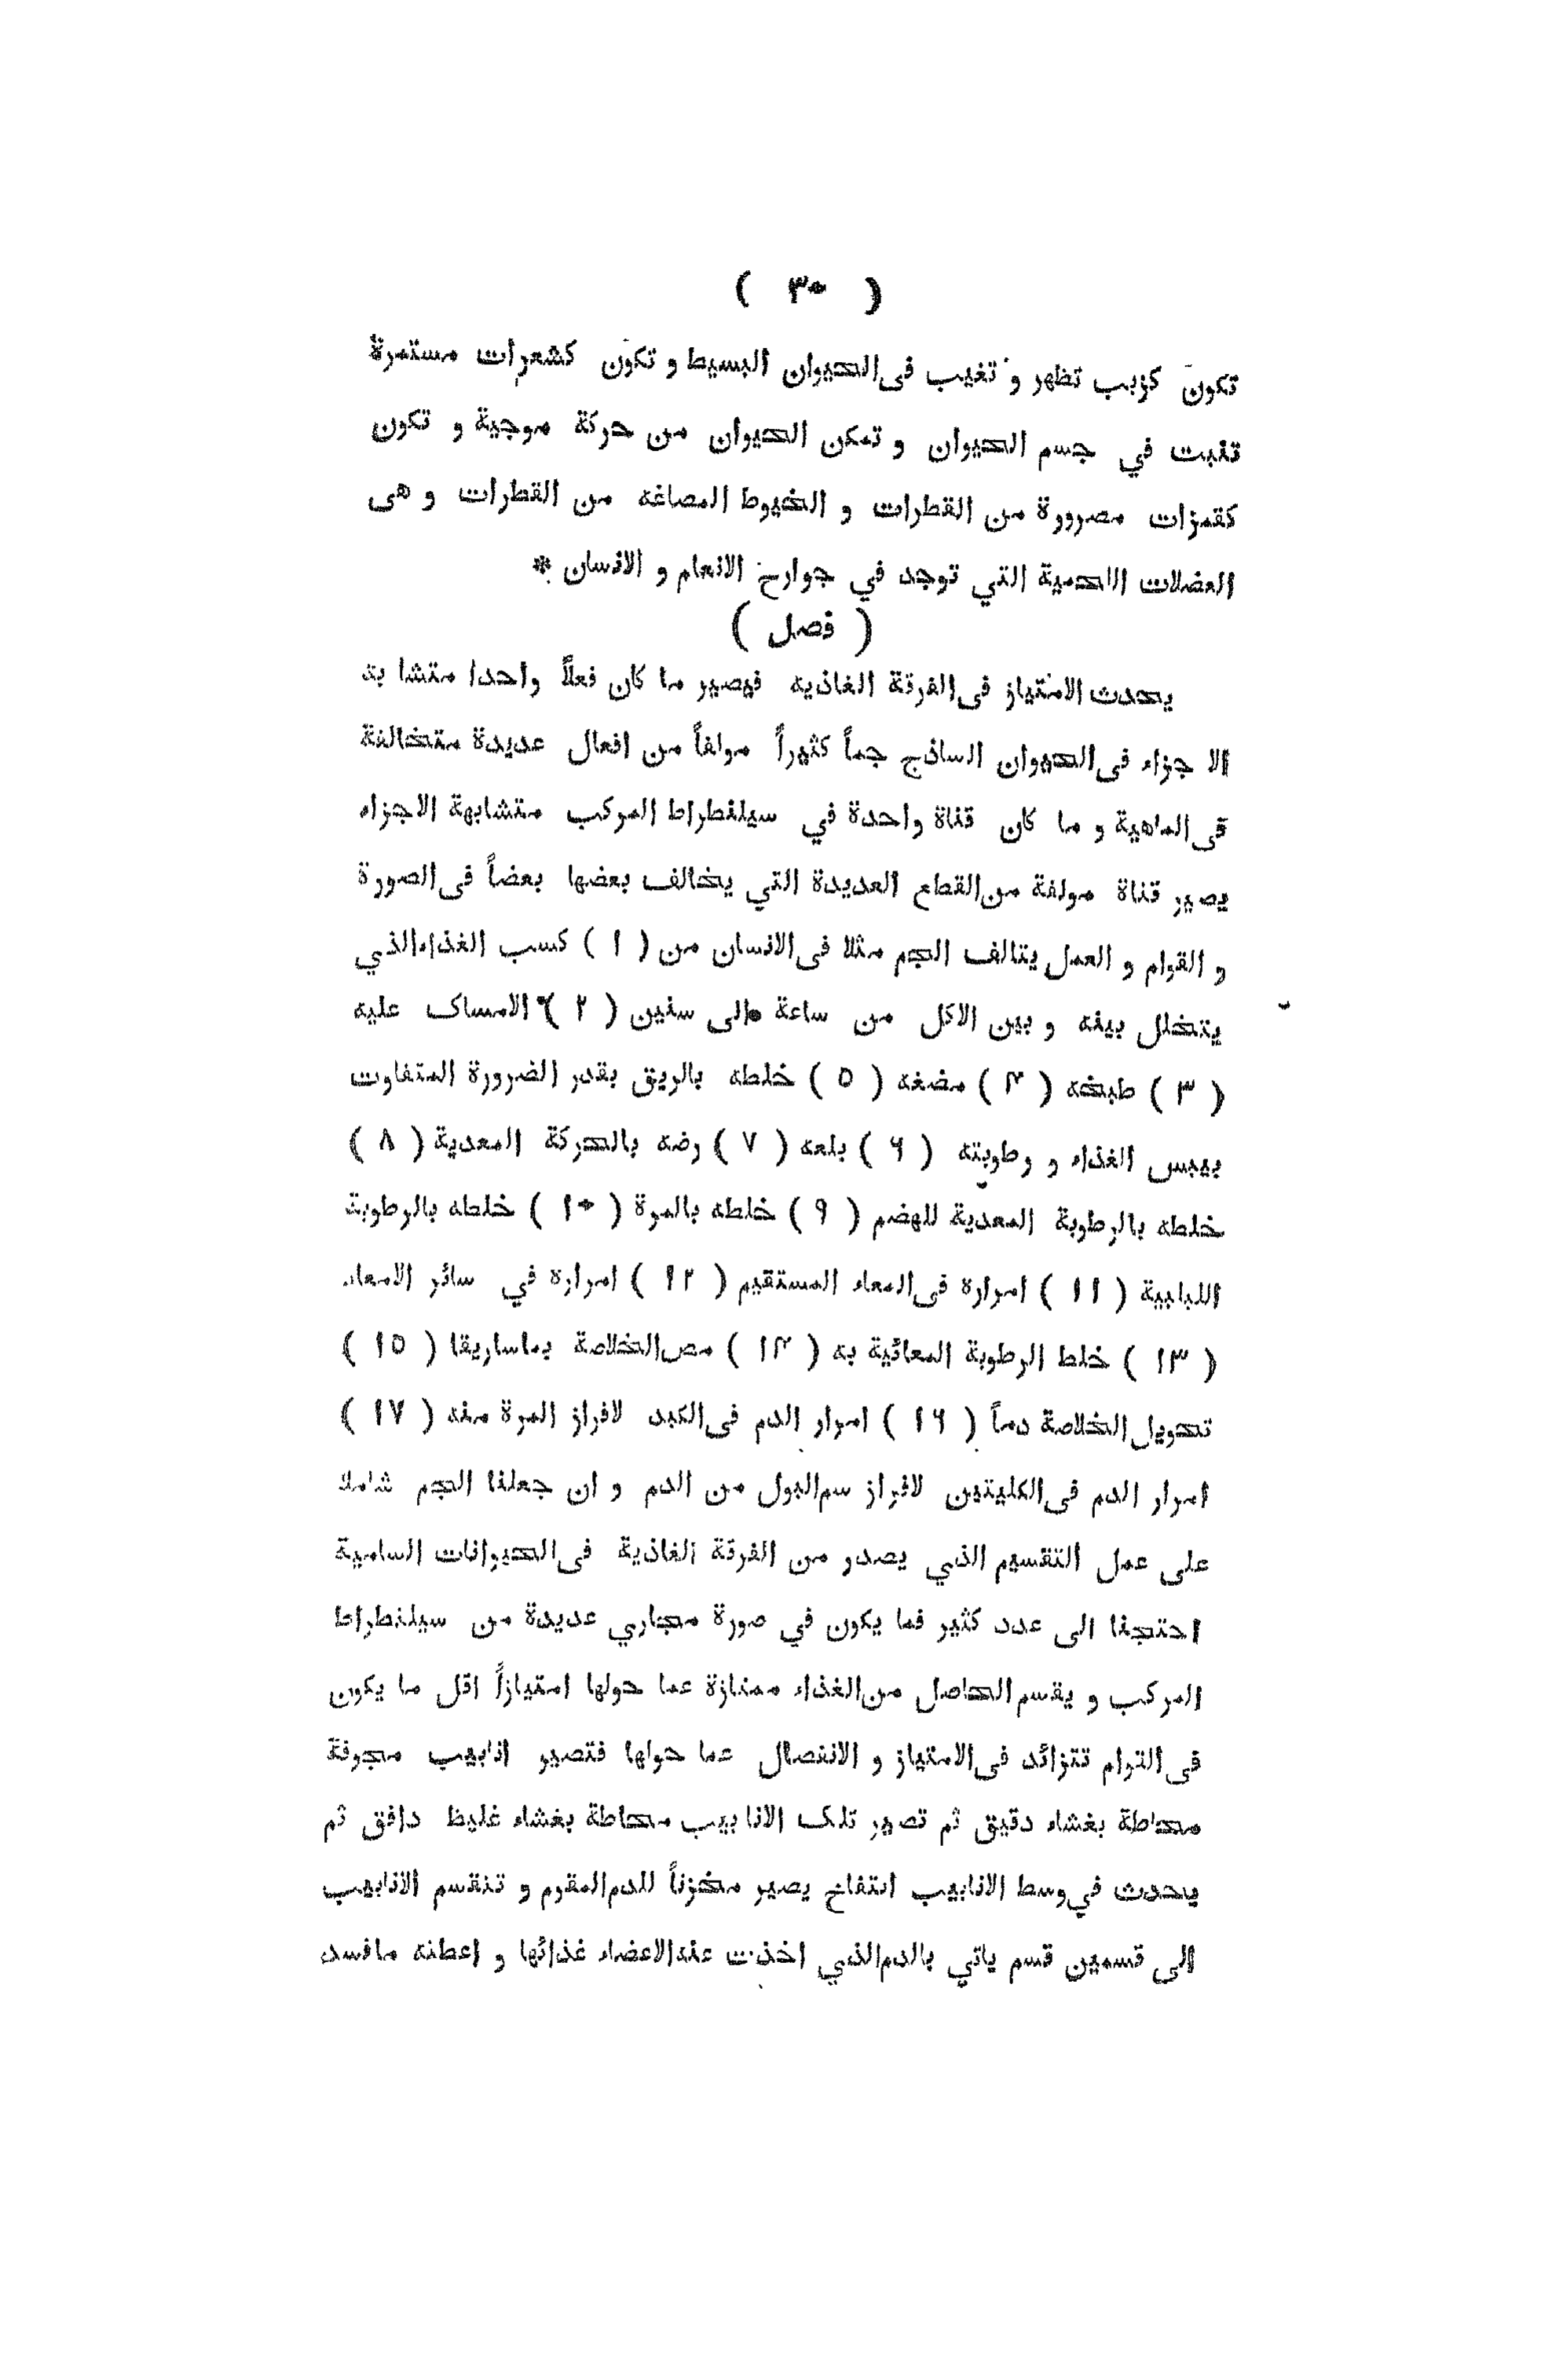 ( ٣٠ )
تكون كزبب تظهر و تغيب فى الحيوان البسيط و تكون كشعرات مستمرة
تنبت في جسم الحيوان و تمكن الحيوان من حركة موجية و تكون
كقمزات مصرورة من القطرات و الخيوط المصاغه من القطرات و هى
العضلات اللحمية التي توجد في جوارح الانعام و الانسان *
( فصل )
يحدث الامتياز فى الفرقة الغاذيه فيصير ما كان فعلاً واحدا متشا به
الا جزاء فى الحيوان الساذج جماً كثيراً مولفاً من افعال عديدة متخالفة
فى الماهية و ما كان قناة واحدة في سيلنطراط المركب متشابهة الاجزاء
يصير قناة مولفة من القطاع العديدة التي يخالف بعضها بعضاً فى الصورة
و القوام و العمل يتالف الجم مثلا فى الانسان من ( ١ ) كسب الغذاء الذي
يتخلل بينه و بين الاكل من ساعة الى سنين ( ٢ ) الامساك عليه
( ٣ ) طبخه ( ٤ ) مضغه ( ٥ ) خلطه بالريق بقدر الضرورة المتفاوت
بيبس الغذاء و رطوبته ( ٦ ) بلعه ( ٧ ) رضه بالحركة المعدية ( ٨ )
خلطه بالرطوبة المعدية للهضم ( ٩ ) خلطه بالمرة ( ١٠ ) خلطه بالرطوبة
اللبابية ( ١١ ) امرارة فى المعاء المستقيم ( ١٢ ) امرارة في سائر الامعاء
( ١٣ ) خلط الرطوبة المعائية به ( ١٤ ) مص الخلاصة بماساريقا ( ١٥ )
تحويل الخلاصة دماً ( ١٦ ) امرار الدم فى الكبد لافراز المرة منه ( ١٧ )
امرار الدم فى الكليتين لافراز سم البول من الدم و ان جعلنا الجم شاملا
على عمل التقسيم الذي يصدر من الفرقة الغاذية فى الحيوانات السامية
احتجنا الى عدد كثير فما يكون في صورة مجاري عديدة من سيلنطراط
المركب و يقسم الحاصل من الغذاء ممتازة عما حولها امتيازاً اقل ما يكون
فى القوام تتزائد فى الامتياز و الانفصال عما حولها فتصير انابيب مجوفة
محاطة بغشاء دقيق ثم تصير تلك الانا بيب محاطة بغشاء غليظ دافق ثم
يحدث في وسط الانابيب انتفاخ يصير مخزناً للدم المقوم و تنقسم الانابيب
الى قسمين قسم ياتي بالدم الذي اخذت عنه الاعضاء غذائها و اعطته مافسد